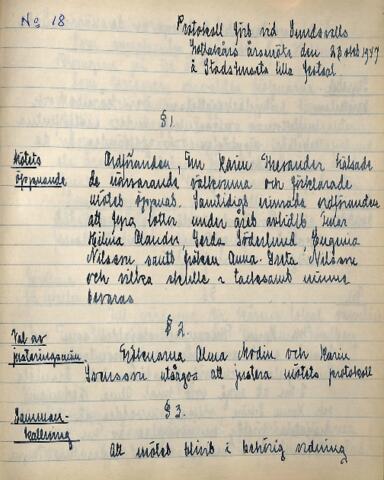 No 18
Protokoll förb vid Sundsvalls
Lottakårs årsmöte den 23 okt 1947
å Stadshusets lilla festsal
§ 1.
Mötets
öppnande
Ordföranden, Fru Karin Kreander hälsade
de närvarande välkomna och förklarade
mötet öppnat. Samtidigt nämnde ordföranden
att fyra lottor under året avlidit Fruar
Hilma Alander, Gerda Söderlund, Eugenia
Nilsson samt fröken Anna-Greta Nilsson
och vilka skulle i tacksamt minne
bevaras
§ 2.
Val av
justeringsmän.
Fröknarna Alma Modin och Karin
Svensson utsågos att justera mötets protokoll
§ 3.
Samman-
kallning
Att mötet blivit i behörig ordning